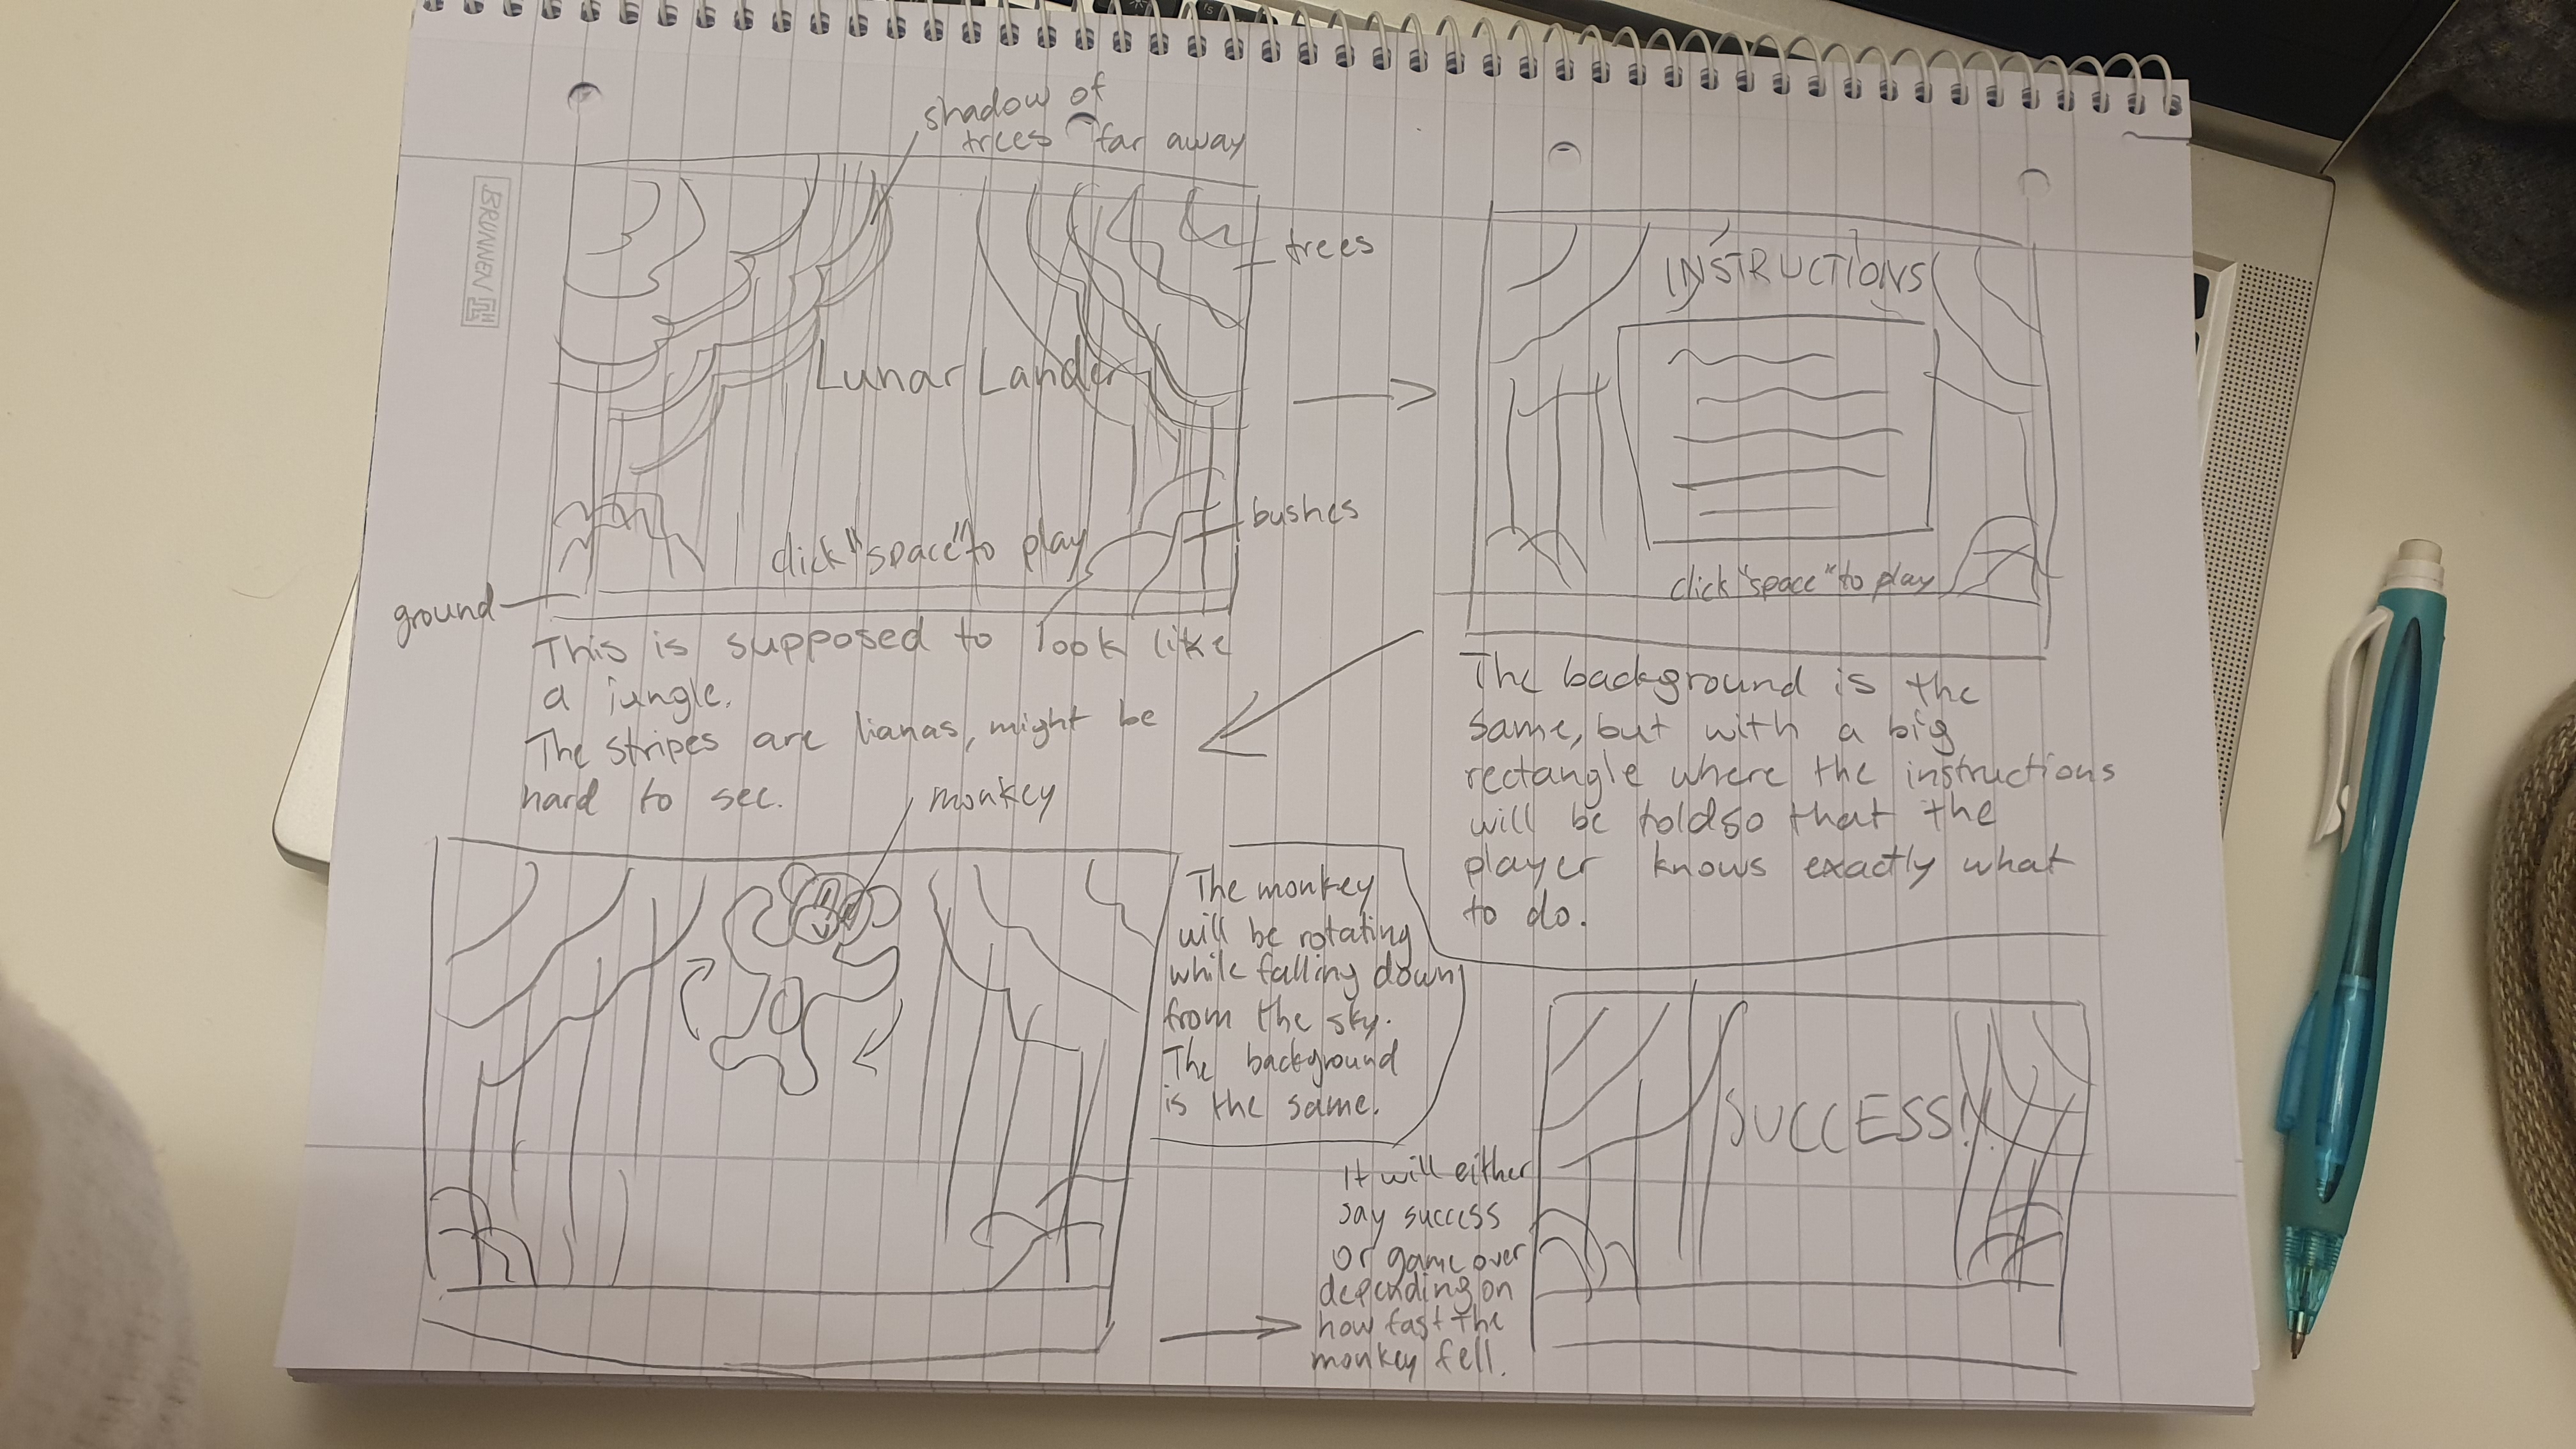 shadow of
trees far away
BRUNNEN
trees
Lunar Lander
bushes
click "space" to play
ground
This is supposed to look like
a jungle.
The stripes are lianas, might be
hard to see.
INSTRUCTIONS
click "space" to play
The background is the
same, but with a big
rectangle where the instructions
will be told so that the
player knows exactly what
to do.
monkey
The monkey
will be rotating
while falling down
from the sky.
The background
is the same.
It will either
say success
or game over
depending on
how fast the
monkey fell.
SUCCESS!!